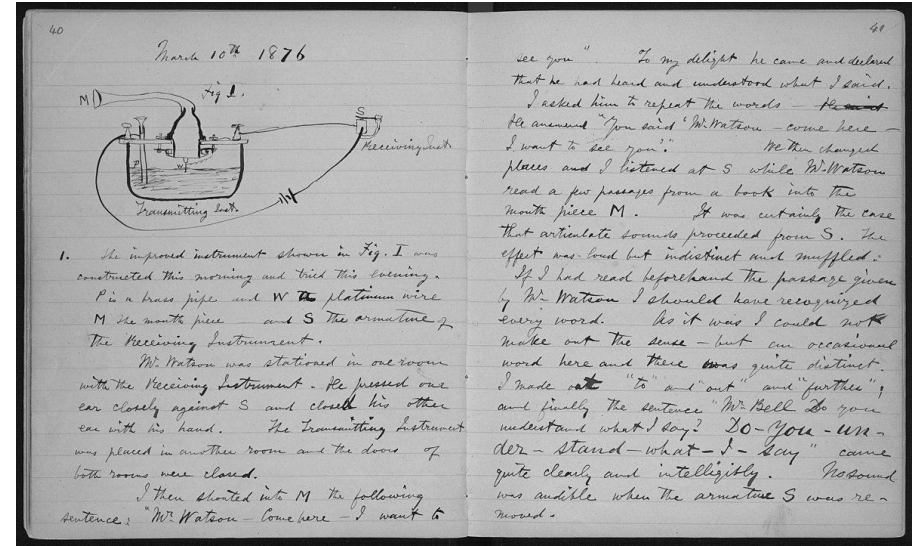 40
March 10th 1876
Fig 1.
M
S
Receiving Inst.
P
W
Transmitting Inst.
1. The improved instrument shown in Fig. I was
constructed this morning and tried this evening.
P is a brass pipe and W the platinum wire
M the mouth piece and S the armature of
the Receiving Instrument.
Mr. Watson was stationed in one room
with the Receiving Instrument. He pressed one
ear closely against S and closed his other
ear with his hand. The Transmitting Instrument
was placed in another room and the doors of
both rooms were closed.
I then shouted into M the following
sentence: "Mr. Watson – Come here – I want to
40
see you". To my delight he came and declared
that he had heard and understood what I said.
I asked him to repeat the words – He said
He answered "You said 'Mr. Watson – come here –
I want to see you'." We then changed
places and I listened at S while Mr. Watson
read a few passages from a book into the
mouth piece M. It was certainly the case
that articulate sounds proceeded from S. The
effect was loud but indistinct and muffled.
If I had read beforehand the passage given
by Mr. Watson I should have recognized
every word. As it was I could not
make out the sense – but an occasional
word here and there was quite distinct.
I made out "to" and "out" and "further";
and finally the sentence "Mr. Bell Do you
understand what I say? Do – you – un –
der – stand – what – I – say" came
quite clearly and intelligibly. No sound
was audible when the armature S was re-
moved.